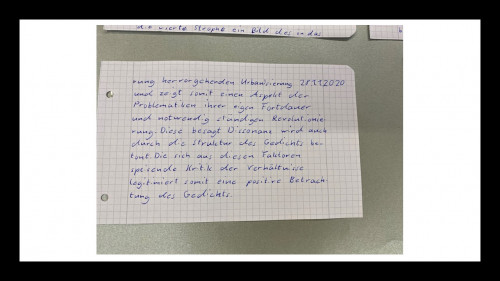 die vierte Strophe ein Bild des in das
rung hervorgehenden Urbanisierung 28.11.2020
und zeigt somit einen Aspekt der
Problematiken ihrer eigen Fortdauer
und notwendig ständigen Revolutionie-
rung. Diese besagt Dissonanz wird auch
durch die Struktur des Gedichts be-
tont. Die sich aus diesen Faktoren
speisende Kritik der Verhältnisse
legitimiert somit eine positive Betrach-
tung des Gedichts.